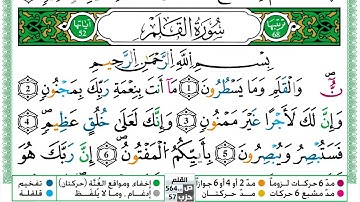 ترتيبها 68 سُورَةُ القَلَمِ آياتها 52
بِسْمِ اللَّهِ الرَّحْمَٰنِ الرَّحِيمِ
نٓ وَالْقَلَمِ وَمَا يَسْطُرُونَ 1 مَا أَنتَ بِنِعْمَةِ رَبِّكَ بِمَجْنُونٍ 2
وَإِنَّ لَكَ لَأَجْرًا غَيْرَ مَمْنُونٍ 3 وَإِنَّكَ لَعَلَىٰ خُلُقٍ عَظِيمٍ 4
فَسَتُبْصِرُ وَيُبْصِرُونَ 5 بِأَييِّكُمُ الْمَفْتُونُ 6 إِنَّ رَبَّكَ هُوَ
مدّ 6 حركات لزوماً مدّ 2 أو 4 أو 6 جوازاً القلم ص 564 إخفاء، ومواقع الغُنَّة (حركتان) تفخيم
مدّ مشبع 6 حركات مدّ حركتان حزب 57 إدغام، وما لا يُلفَظ قلقلة